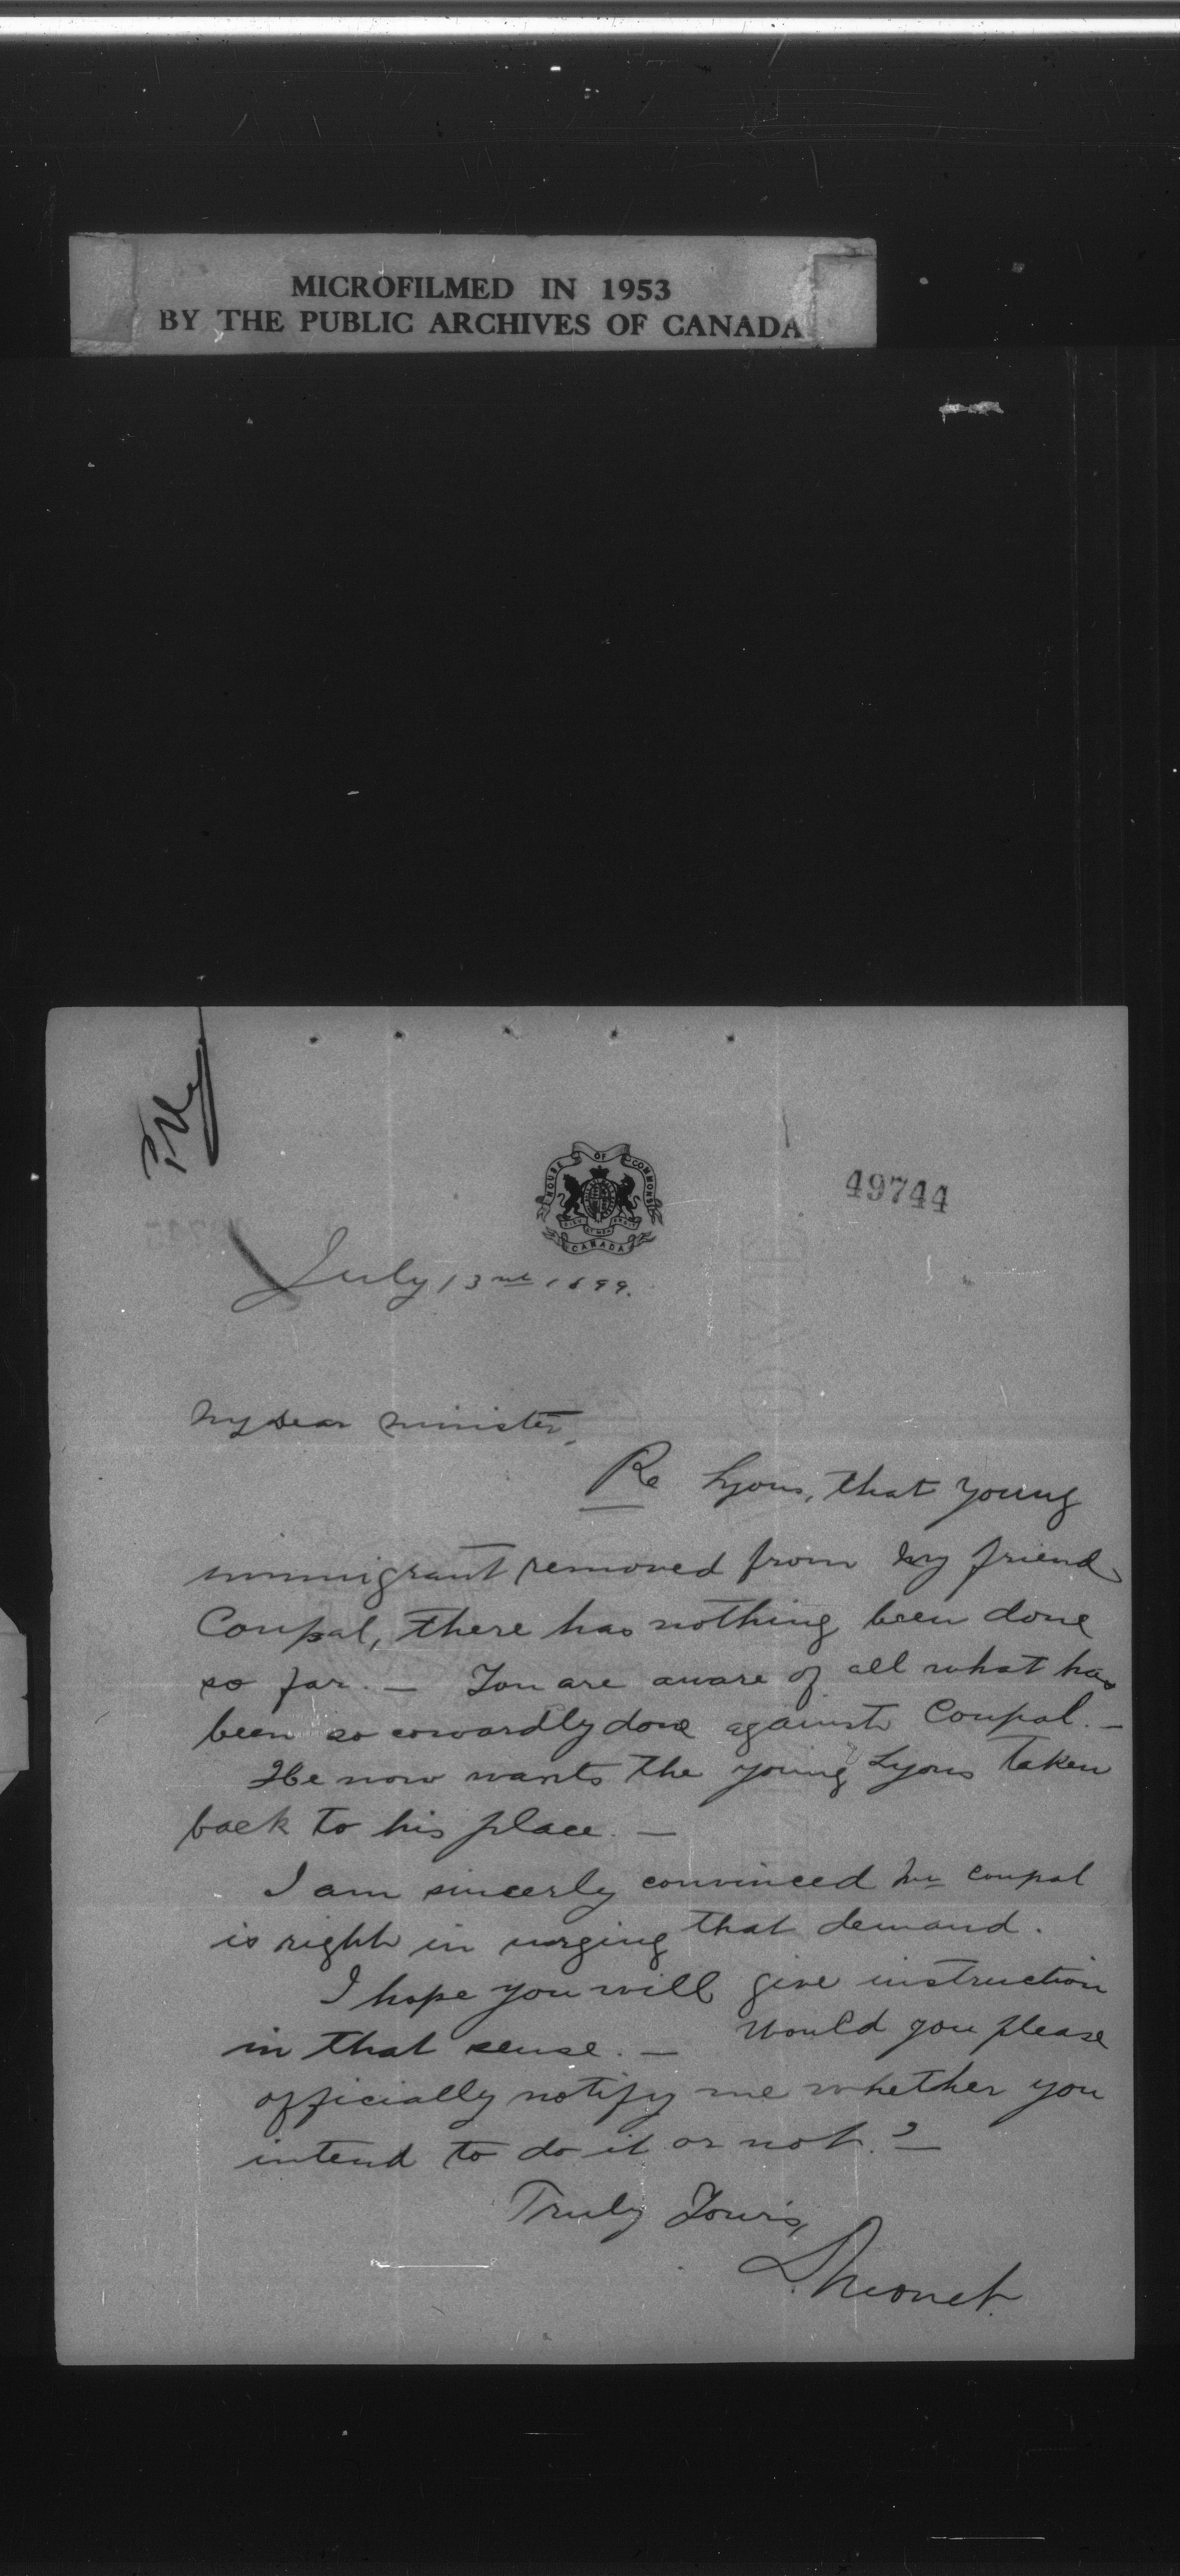 MICROFILMED IN 1953
BY THE PUBLIC ARCHIVES OF CANADA
File
HOUSE OF COMMONS
CANADA
49744
July 13th 1899.
My dear minister,
Re Lyons, that young
immigrant removed from my friend
Coupal, there has nothing been done
so far. — You are aware of all what has
been so cowardly done against Coupal. —
He now wants the young Lyons taken
back to his place. —
I am sincerly convinced Mr Coupal
is right in urging that demand.
I hope you will give instruction
in that sense. — Would you please
officially notify me whether you
intend to do it or not? —
Truly Yours,
D. Monet.